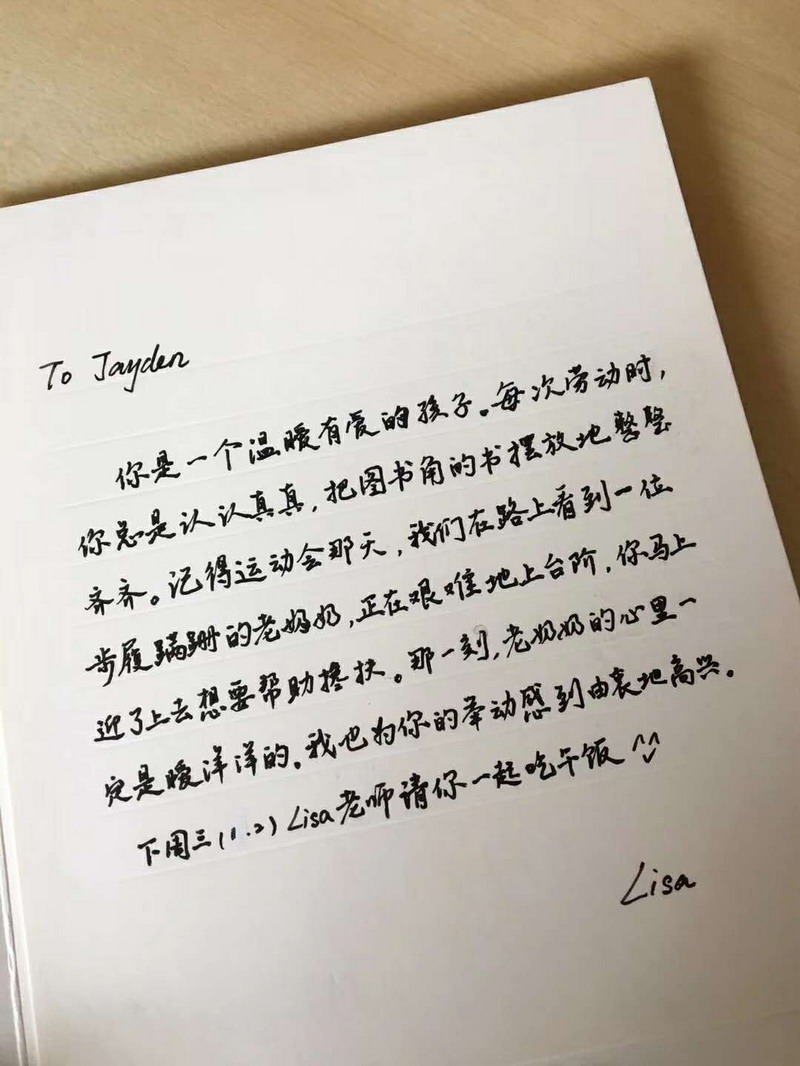 To Jayden
你是一个温暖有爱的孩子。每次劳动时，
你总是认认真真，把图书角的书摆放地整整
齐齐。记得运动会那天，我们在路上看到一位
步履蹒跚的老奶奶，正在艰难地上台阶，你马上
迎了上去想要帮助搀扶。那一刻，老奶奶的心里一
定是暖洋洋的。我也为你的举动感到由衷地高兴。
下周三(1.2)Lisa老师请你一起吃午饭^^
Lisa